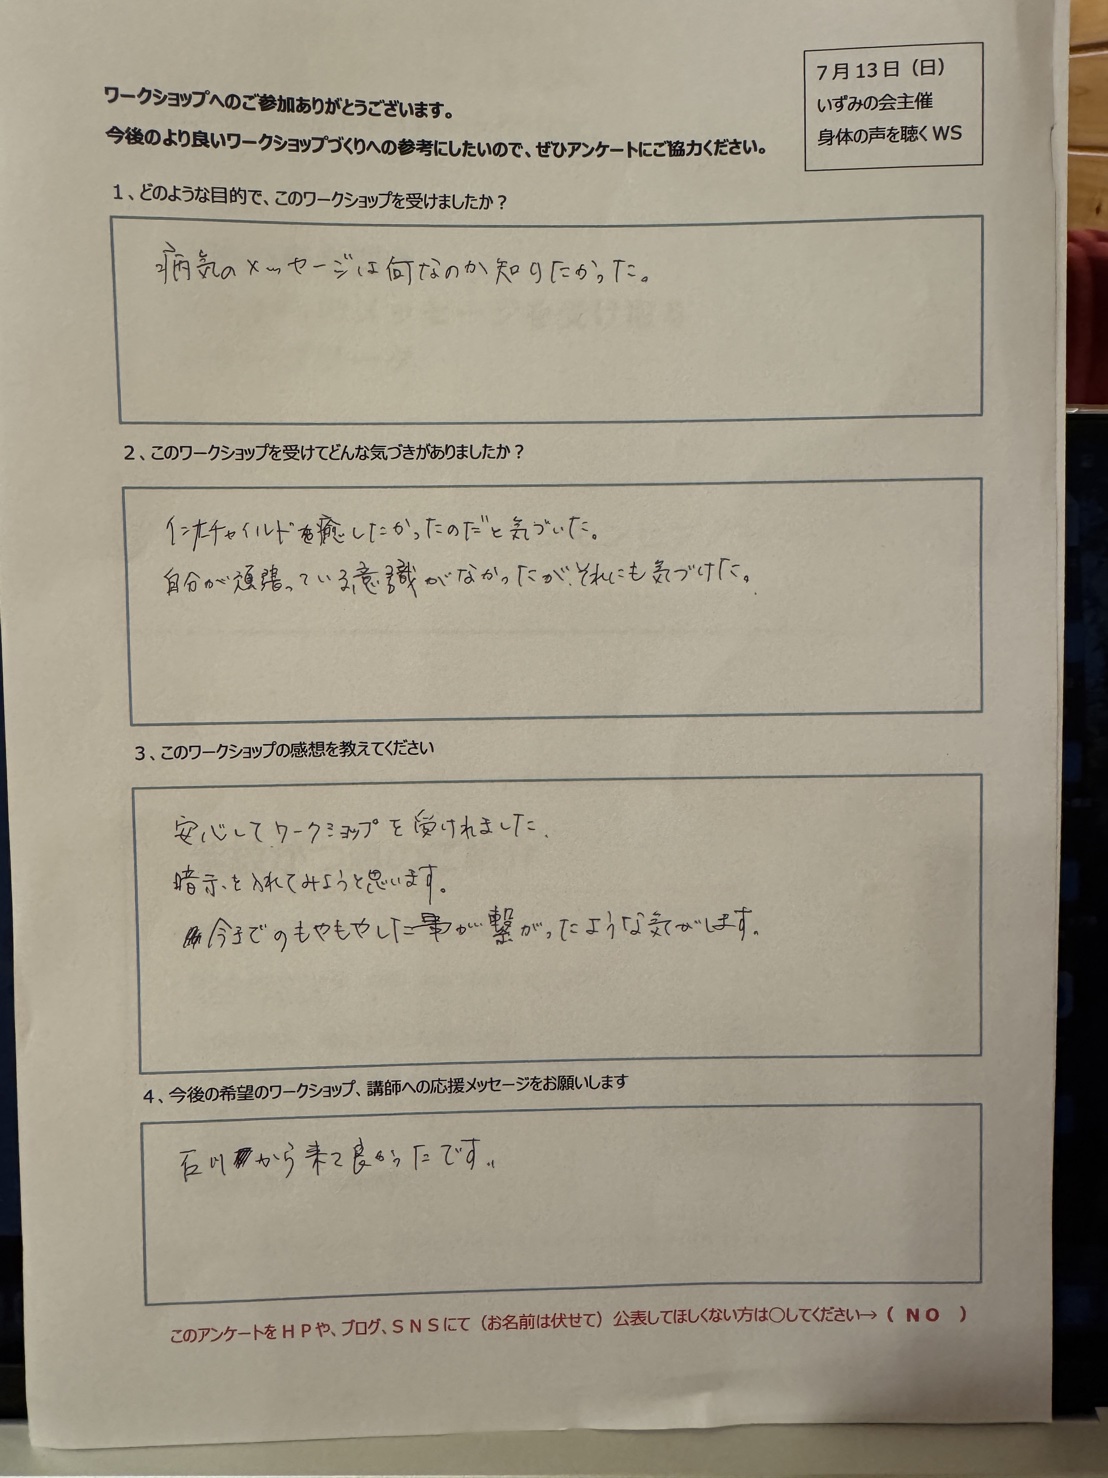 7月13日（日）
いずみの会主催
身体の声を聴くWS
ワークショップへのご参加ありがとうございます。
今後のより良いワークショップづくりへの参考にしたいので、ぜひアンケートにご協力ください。
1、どのような目的で、このワークショップを受けましたか？
病気のメッセージは何なのか知りたかった。
2、このワークショップを受けてどんな気づきがありましたか？
インナーチャイルドを癒したかったのだと気づいた。
自分が頑張っている意識がなかったが、それにも気づけた。
3、このワークショップの感想を教えてください
安心してワークショップを受けれました。
暗示を入れてみようと思います。
今までのもやもやした事が繋がったような気がします。
4、今後の希望のワークショップ、講師への応援メッセージをお願いします
石川から来て良かったです。
このアンケートをHPや、ブログ、SNSにて（お名前は伏せて）公表してほしくない方は○してください→（ NO ）